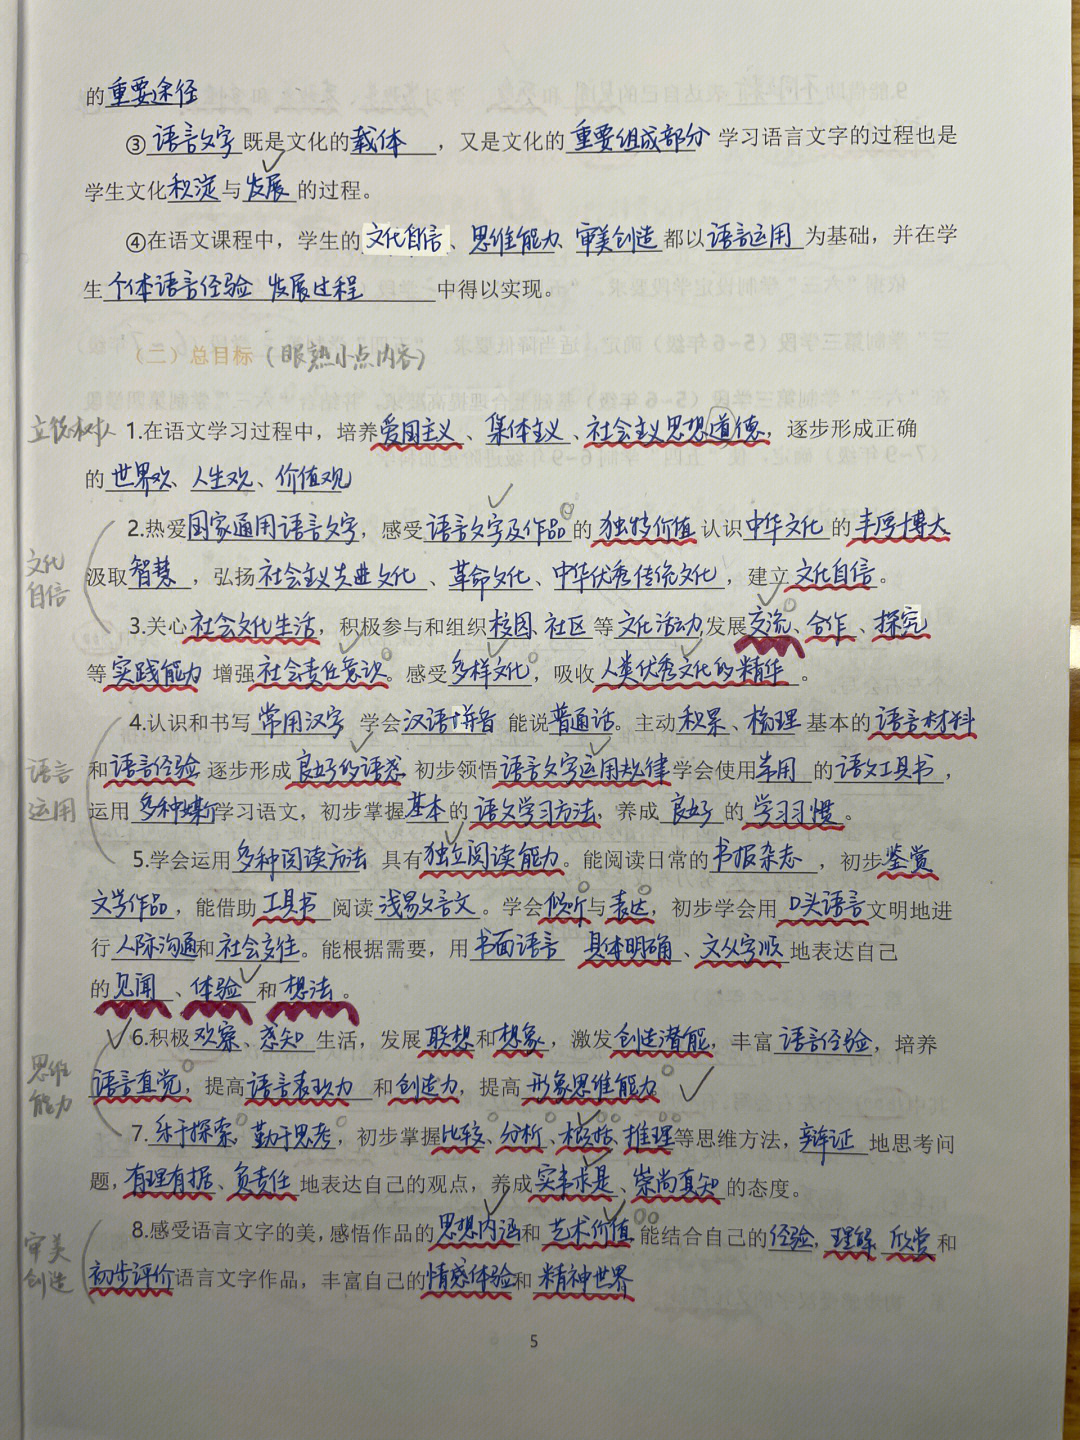 的重要途径
③语言文字既是文化的载体，又是文化的重要组成部分 学习语言文字的过程也是
学生文化积淀与发展的过程。
④在语文课程中，学生的文化自信、思维能力、审美创造都以语言运用为基础，并在学
生个体语言经验 发展过程中得以实现。
（二）总目标（眼熟小点内容）
立德树人 1.在语文学习过程中，培养爱国主义、集体主义、社会主义思想道德，逐步形成正确
的世界观、人生观、价值观
2.热爱国家通用语言文字，感受语言文字及作品的独特价值 认识中华文化的丰厚博大
文化自信
汲取智慧，弘扬社会主义先进文化、革命文化、中华优秀传统文化，建立文化自信。
3.关心社会文化生活，积极参与和组织校园、社区等文化活动，发展交流、合作、探究
等实践能力 增强社会责任意识。感受多样文化，吸收人类优秀文化的精华。
4.认识和书写常用汉字 学会汉语拼音 能说普通话。主动积累、梳理基本的语言材料
语言运用
和语言经验 逐步形成良好的语感 初步领悟语言文字运用规律 学会使用常用的语文工具书，
运用多种媒介学习语文，初步掌握基本的语文学习方法，养成良好的学习习惯。
5.学会运用多种阅读方法 具有独立阅读能力。能阅读日常的书报杂志，初步鉴赏
文学作品，能借助工具书阅读浅易文言文。学会倾听与表达，初步学会用口头语言文明地进
行人际沟通和社会交往。能根据需要，用书面语言 具体明确、文从字顺地表达自己
的见闻、体验和想法。
6.积极观察、感知生活，发展联想和想象，激发创造潜能，丰富语言经验，培养
思维能力
语言直觉，提高语言表现力和创造力，提高形象思维能力
7.乐于探索、勤于思考，初步掌握比较、分析、概括、推理等思维方法，辩证地思考问
题，有理有据、负责任地表达自己的观点，养成实事求是、崇尚真知的态度。
8.感受语言文字的美，感悟作品的思想内涵和艺术价值 能结合自己的经验，理解、欣赏和
审美创造
初步评价语言文字作品，丰富自己的情感体验和精神世界
5